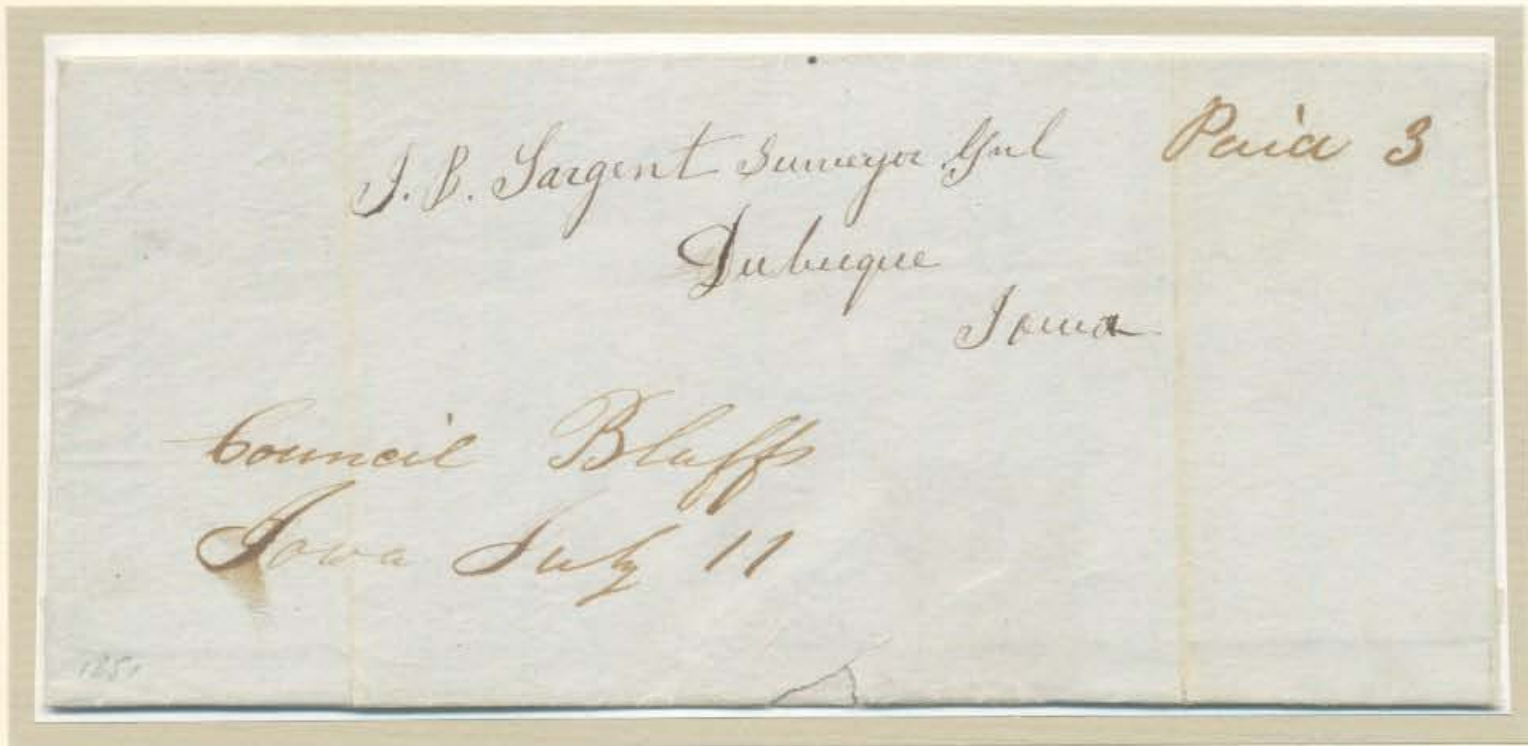 Paid 3
J. B. Sargent Surveyor Gnl
Dubuque
Iowa
Council Bluffs
Iowa July 11
1851